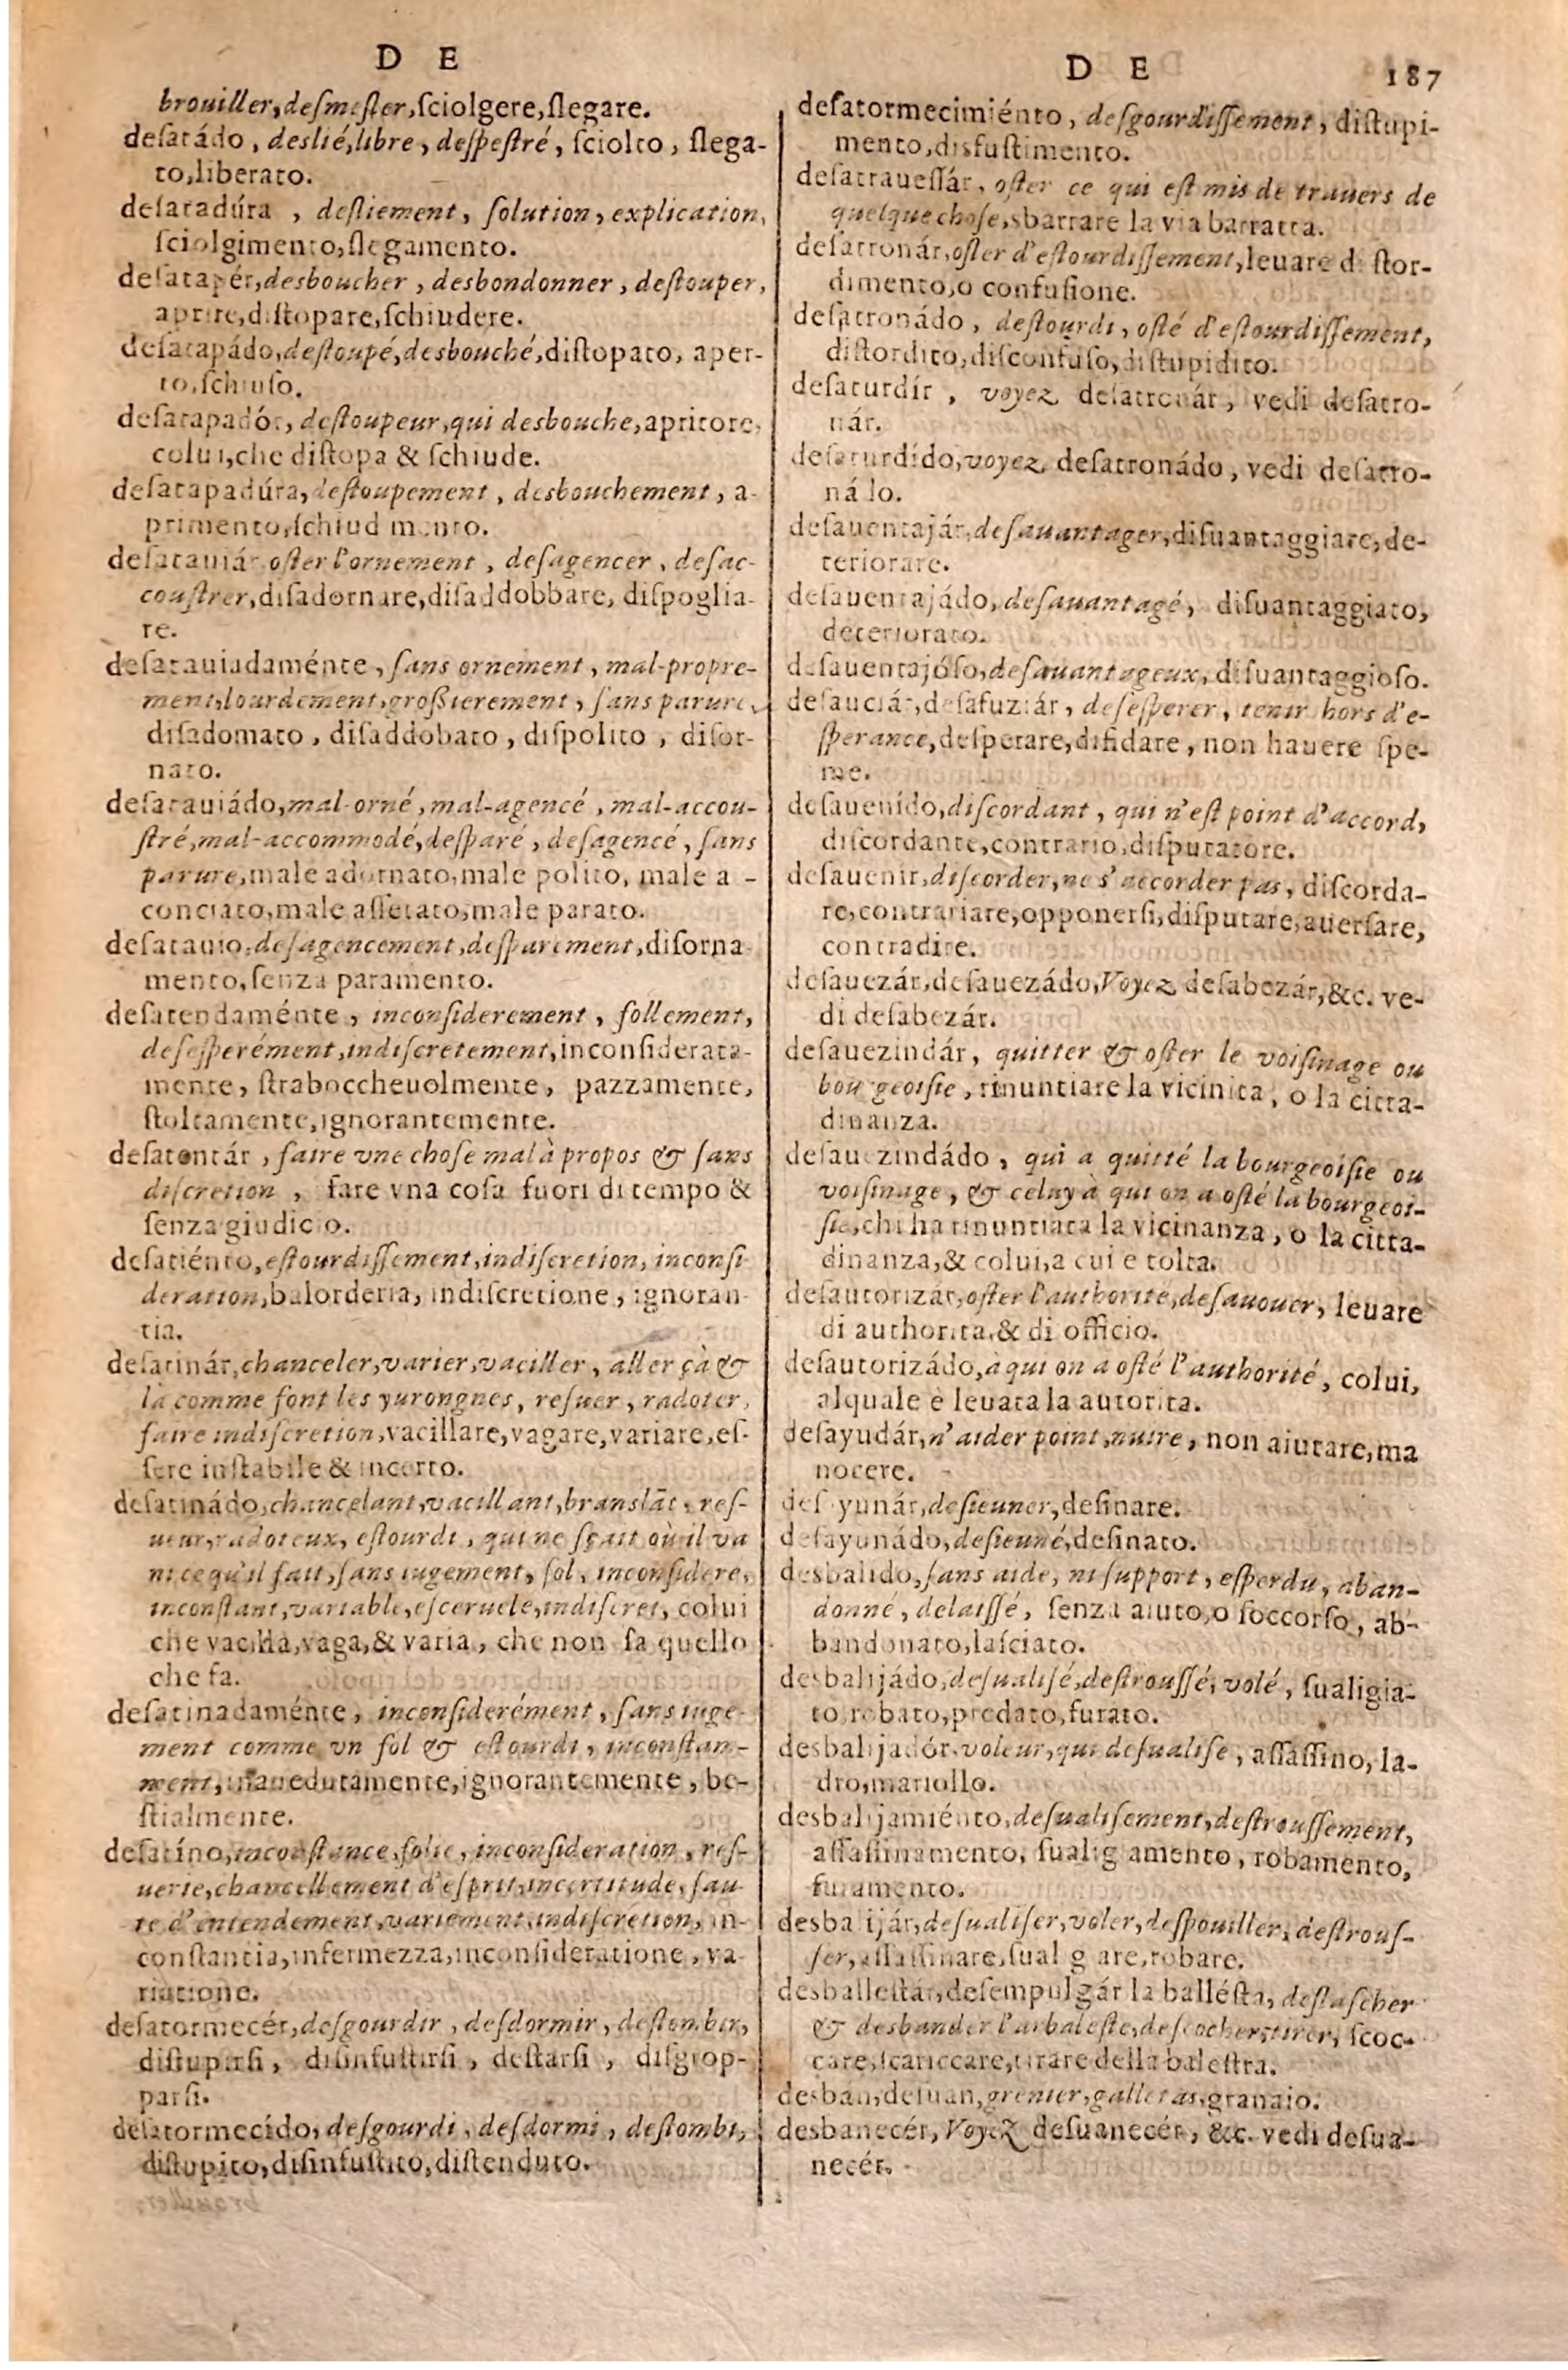 D E
brouiller,desmesler,ſciolgere,ſlegare.
deſatádo , deslié,libre, deſpeſtré, ſciolto, ſlega-
to,liberato.
deſatadúra , desliement, ſolution, explication,
ſciolgimento,ſlegamento.
deſatapér,desboucher, desbondonner, deſtouper,
aprire,diſtopare,ſchiudere.
deſatapádo,deſtoupé,desbouché,diſtopato, aper-
to,ſchiuſo.
deſatapadór, deſtoupeur,qui desbouche,apritore,
colui,che diſtopa & ſchiude.
deſatapadúra,deſtoupement, desbouchement, a-
primento,ſchiudimento.
deſatauiár oſter l'ornement, deſagencer, deſac-
couſtrer,diſadornare,diſaddobbare, diſpoglia-
re.
deſatauiadaménte, ſans ornement, mal-propre-
ment,lourdement,groſsierement, ſans parure,
diſadornato, diſaddobato, diſpolito, diſor-
nato.
deſatauiádo,mal-orné,mal-agencé, mal-accou-
ſtré,mal-accommodé,deſparé, deſagencé, ſans
parure,male adornato,male polito, male a-
conciato,male aſſetato,male parato.
deſatauio,deſagencement,deſparement,diſorna-
mento,ſenza paramento.
deſatendaménte, inconſiderement, follement,
deſeſperément,indiſcretement,inconſiderata-
mente, ſtraboccheuolmente, pazzamente,
ſtoltamente,ignorantemente.
deſatentár, faire vne choſe mal à propos & ſans
diſcretion, fare vna coſa fuori di tempo &
ſenza giudicio.
deſatiénto,eſtourdiſſement,indiſcretion, inconſi-
deration,balorderia, indiſcretione, ignoran-
tia.
deſatinár,chanceler,varier,vaciller, aller çà &
là comme font les yurongnes, reſuer, radoter,
faire indiſcretion,vacillare,vagare,variare,eſ-
ſere inſtabile & incerto.
deſatinádo,chancelant,vacillant,branslāt, reſ-
ueur,radoteux, eſtourdi, qui ne ſçait où il va
ni ce qu'il fait,ſans iugement, fol, inconſidere,
inconſtant,variable,eſceruele,indiſcret, colui
che vacilla,vaga,& varia, che non ſa quello
che fa.
deſatinadaménte, inconſiderément, ſans iuge-
ment comme vn fol & eſtourdi, inconſtam-
ment,inauedutamente,ignorantemente, be-
ſtialmente.
deſatíno,inconſtance,folie, inconſideration, reſ-
uerie,chancellement d'eſprit,incertitude, fau-
te d'entendement,variement,indiſcretion, in-
conſtantia,infermezza,inconſideratione, va-
riatione.
deſatormecér,deſgourdir, deſdormir, deſtombir,
diſtupirſi, diſinfuſtirſi, deſtarſi, diſgrop-
parſi.
deſatormecído, deſgourdi, deſdormi, deſtombi,
diſtupito,diſinfuſtito,diſtenduto.
D E 187
deſatormecimiénto, deſgourdiſſement, diſtupi-
mento,disfuſtimento.
deſatraueſſár, oſter ce qui eſt mis de trauers de
quelque choſe,sbarrare la via barratta.
deſatronár,oſter d'eſtourdiſſement,leuare di ſtor-
dimento,o confuſione.
deſatronádo, deſtourdi, oſté d'eſtourdiſſement,
diſtordito,diſconfuſo,diſtupidito.
deſaturdír , voyez deſatronár, vedi deſatro-
nár.
deſaturdído,voyez deſatronádo, vedi deſatro-
nádo.
deſauentajár,deſauantager,diſuantaggiare,de-
teriorare.
deſauentajádo,deſauantagé, diſuantaggiato,
deteriorato.
deſauentajóſo,deſauantageux,diſuantaggioſo.
deſauciár,deſafuziár, deſeſperer, tenir hors d'e-
ſperance,deſperare,difidare, non hauere ſpe-
me.
deſauenído,diſcordant, qui n'eſt point d'accord,
diſcordante,contrario,diſputatore.
deſauenir,diſcorder,ne s'accorder pas, diſcorda-
re,contrariare,opponerſi,diſputare,auerſare,
contradire.
deſauezár,deſauezádo,Voyez deſabezár,&c. ve-
di deſabezár.
deſauezindár, quitter & oſter le voiſinage ou
bourgeoiſie, rinuntiare la vicinita, o la citta-
dinanza.
deſauezindádo, qui a quitté la bourgeoiſie ou
voiſinage, & celuy à qui on a oſté la bourgeoi-
ſie,chi ha rinuntiata la vicinanza, o la citta-
dinanza,& colui,a cui e tolta.
deſautorizár,oſter l'authorité,deſauouer, leuare
di authorita,& di officio.
deſautorizádo,à qui on a oſté l'authorité, colui,
alquale è leuata la autorita.
deſayudár,n'aider point,nuire, non aiutare,ma
nocere.
deſayunár,deſieuner,deſinare.
deſayunádo,deſieuné,deſinato.
desbalido,ſans aide, ni ſupport, eſperdu, aban-
donné, delaiſſé, ſenza aiuto,o ſoccorſo, ab-
bandonato,laſciato.
desbalijádo,deſualiſé,deſtrouſſé, volé, ſualigia-
to,robato,predato,furato.
desbalijadór,voleur,qui deſualiſe, aſſaſſino, la-
dro,mariollo.
desbalijamiénto,deſualiſement,deſtrouſſement,
aſſaſſinamento, ſualigiamento, robamento,
furamento.
desbalijár,deſualiſer,voler,deſpouiller, deſtrouſ-
ſer,aſſaſſinare,ſualigiare,robare.
desballeſtár,deſempulgár la balléſta, deſlaſcher
& desbander l'arbaleſte,deſcocher,tirer, ſcoc-
care,ſcariccare,tirare della baleſtra.
desban,deſuan,grenier,galletas,granaio.
desbanecér,Voyez deſuanecér, &c. vedi deſua-
necér.